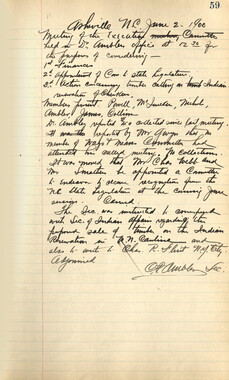 59
Asheville N.C. June 2 - 1900
Meeting of the Executive Committee
held in Dr. Ambler office at 12 30 for
the purpose of considering -
1st Finances
2d Appointment of Com to State Legislature
3d Action concerning timber cutting on Indian
reservation of Cherokee.
Members present Powell, McLeudon,
Ambler, James, Collins
Dr. Ambler reported $ collected since last meeting.
It was also reported by Mr. that no
member of Ways & Means Committee had
attended the called meeting for collections.
It was moved that Mr. Chas. Webb and
Mr. Smathers be appointed a Committee
to endeavor to secure recognition from the
N.C. State Legislature at the coming June
session. Carried.
The Sec. was instructed to correspond
with Sec. of Indian Affairs regarding the
proposed sale of timber on the Indian
Reservation in W. N. Carolina and
also to write to Chas. R. Flint N.Y. City
Adjourned
C.P. Ambler Sec.